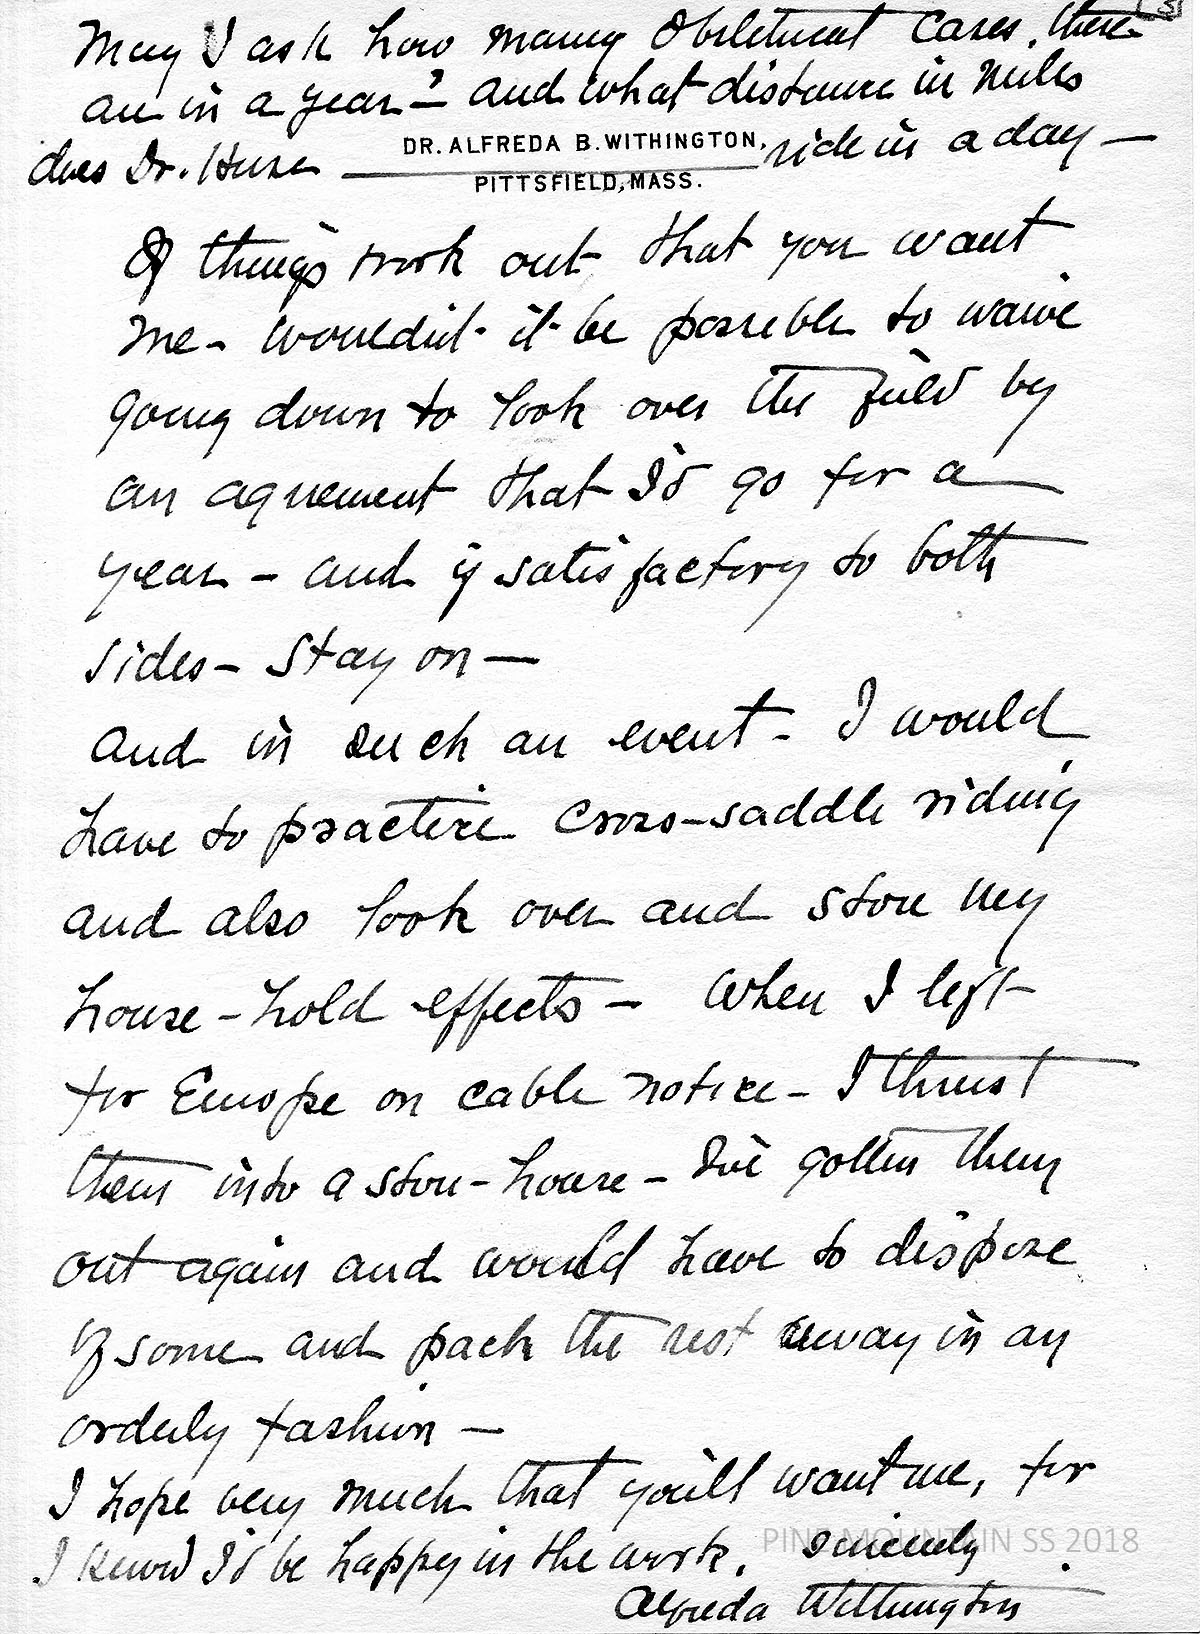 [3]
May I ask how many Obstetrical cases there
are in a year? — and what distance in miles
does Dr. Huse — ride in a day —
DR. ALFREDA B. WITHINGTON,
PITTSFIELD, MASS.
If things work out that you want
me - wouldn't it be possible to waive
going down to look over the field by
an agreement that I'd go for a
year - and if satisfactory to both
sides - stay on —
and in such an event - I would
have to practice cross-saddle riding
and also look over and store my
house-hold effects - When I left
for Europe on cable notice - I thrust
them into a store-house - I've gotten them
out again and would have to dispose
of some and pack the rest away in an
orderly fashion —
I hope very much that you'll want me, for
I know I'd be happy in the work. Sincerely
Alfreda Withington
PINE MOUNTAIN SS 2018